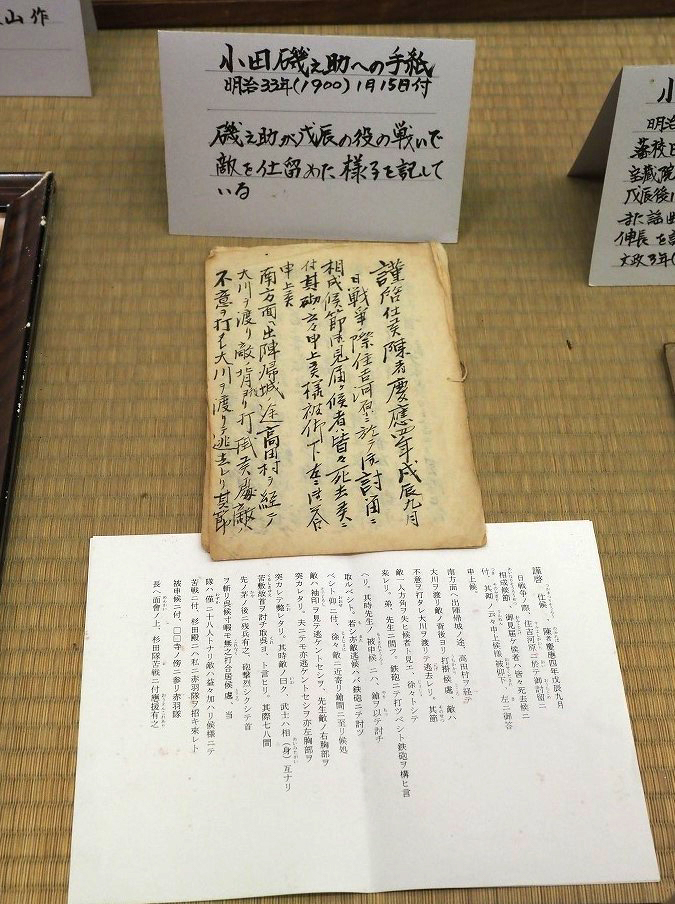 山作
小田磯之助への手紙
明治33年(1900)1月15日付
磯之助が戊辰の役の戦いで
敵を仕留めた様子を記して
いる
小
明治
藩校日
宝蔵院
戊辰後に
また謡曲
伸長を
文政3年(
謹啓仕候陳者慶應四年戊辰九月
日戦争ノ際住吉河原ニ於テ御討留ニ
相成候節御見届ケ候者ハ皆々死去候ニ
付其砌云々申上候様被仰下左ニ御答
申上候
南方面ヘ出陣帰城ノ途高田村ヲ経テ
大川ヲ渡リ敵ノ背後ヨリ打掛候処敵ハ
不意ヲ打タレ大川ヲ渡リテ逃去レリ其節
謹啓 仕候、陳者慶應四年戊辰九月
日戦争ノ際、住吉河原ニ於テ御討留ニ
相成候節、御見届ケ候者ハ皆々死去候ニ
付、其砌ノ云々申上候様被仰下、左ニ御答
申上候。
南方面ヘ出陣帰城ノ途、高田村ヲ経テ
大川ヲ渡リ敵ノ背後ヨリ打掛候処、敵ハ
不意ヲ打タレ大川ヲ渡リテ逃去レリ、其節
敵一人方角ヲ失ヒ候者ト見エ、徐々トシテ
来レリ、弟、先生ニ問ヲ、鉄砲ニテ打ツベント鉄砲ヲ構ヒ言
ヘリ、其時先生ノ被申候ニハ、鎗ヲ以テ討チ
取ルベント、若シ亦敵逃候ハバ鉄砲ニテ討ツ
ベント仰ニ付、徐々敵ニ近寄リ鎗間ニ至リ候処
敵ハ袖印ヲ見テ逃ゲントセシヲ、先生敵ノ右胸部ヲ
突カレタリ。夫ニテモ亦逃ゲントセシヲ亦左胸部ヲ
突カレテ斃レタリ。其時敵ノ曰ク、武士ハ相(身)互ナリ
苦敷故首ヲ討チ取呉ヨ、ト言ヒリ。其際七八間
先ノ茅ノ後ニ残兵有之、砲撃烈シクシテ首
ヲ斬リ呉候寸暇モ無之打合居候処、当
隊ハ僅ニ二十八人トナリ敵ハ益々加ハリ候様ニテ
苦戦ニ付、杉田殿ニハ私ニ赤羽隊ヲ招キ来レト
被申候ニ付、□□寺ノ傍ニ参リ赤羽隊
長ヘ面會ノ上、杉田隊苦戦ニ付應援有之